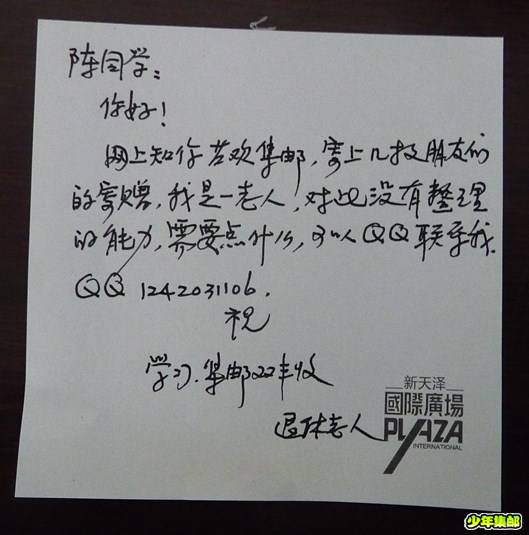 陈同学:
你好!
网上知你喜欢集邮,寄上几枚朋友们
的寄赠,我是一老人,对此没有整理
的能力,需要点什么,可以QQ联系我.
QQ 1242031106.
祝
学习.集邮双丰收
退休老人
新天泽
國際廣場
PLAZA
INTERNATIONAL
少年集邮